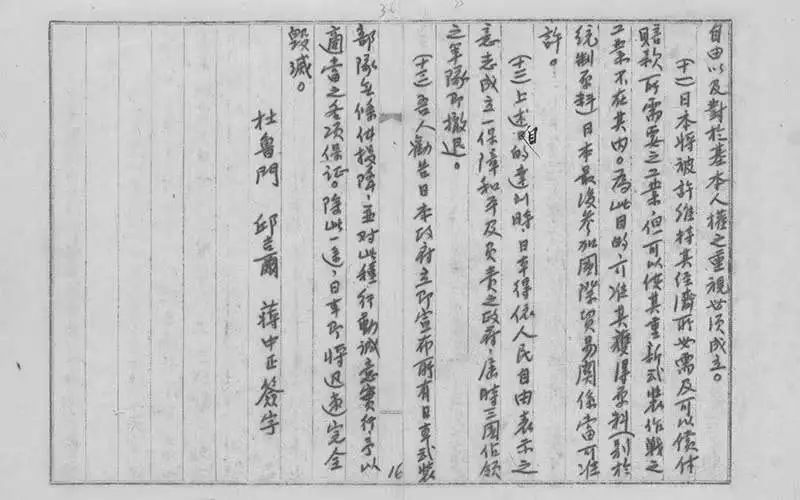 自由以及對於基本人權之重視必須成立。
(十一)日本將被許維持其經濟所必需及可以償付
賠款所需要之工業,但可以使其重新武裝作戰之
工業不在其內。為此目的,可准其獲得原料(別於
統制原料)日本最後參加國際貿易關係當可准
許。
(十二)上述目的達到時日本得依人民自由表示之
意志成立一保障和平及負責之政府,屆時三國佔領
之軍隊即撤退。
(十三)吾人勸告日本政府立即宣布所有日本武裝
部隊無條件投降,並对此種行動誠意實行予以
適當之各項保证。除此一途,日本即將迅速完全
毀滅。
杜魯門 邱吉爾 蔣中正簽字
16